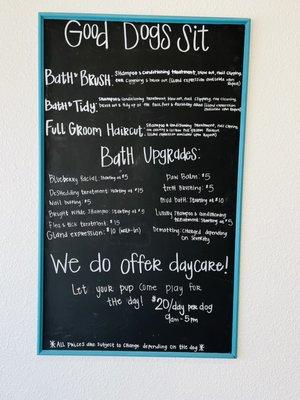 Good Dogs Sit
Bath & Brush: Shampoo & Conditioning treatment, blow out, nail clipping,
ear cleaning & brush out (Gland expression available upon
Request)
Bath & Tidy: Shampoo & Conditioning treatment, blow out, nail clipping, ear cleaning,
Request)
Full Groom Haircut: Shampoo & Conditioning treatment, nail clipping
(Gland expression available upon Request)
Bath Upgrades:
Blueberry Facial: Starting at $5
Deshedding treatment: Starting at $15
Nail buffing: $5
Bright White Shampoo: Starting at $5
Flea & tick treatment: $15
Gland expression: $10 (walk-in)
Paw Balm: $5
Teeth Brushing: $5
Mud bath: Starting at $10
Luxury Shampoo & Conditioning
treatment: Starting at $5
Dematting: Charged depending
on severity
We do offer daycare!
Let your pup come play for
the day! $20/day per dog
9am - 5pm
*All prices are subject to change depending on the dog*